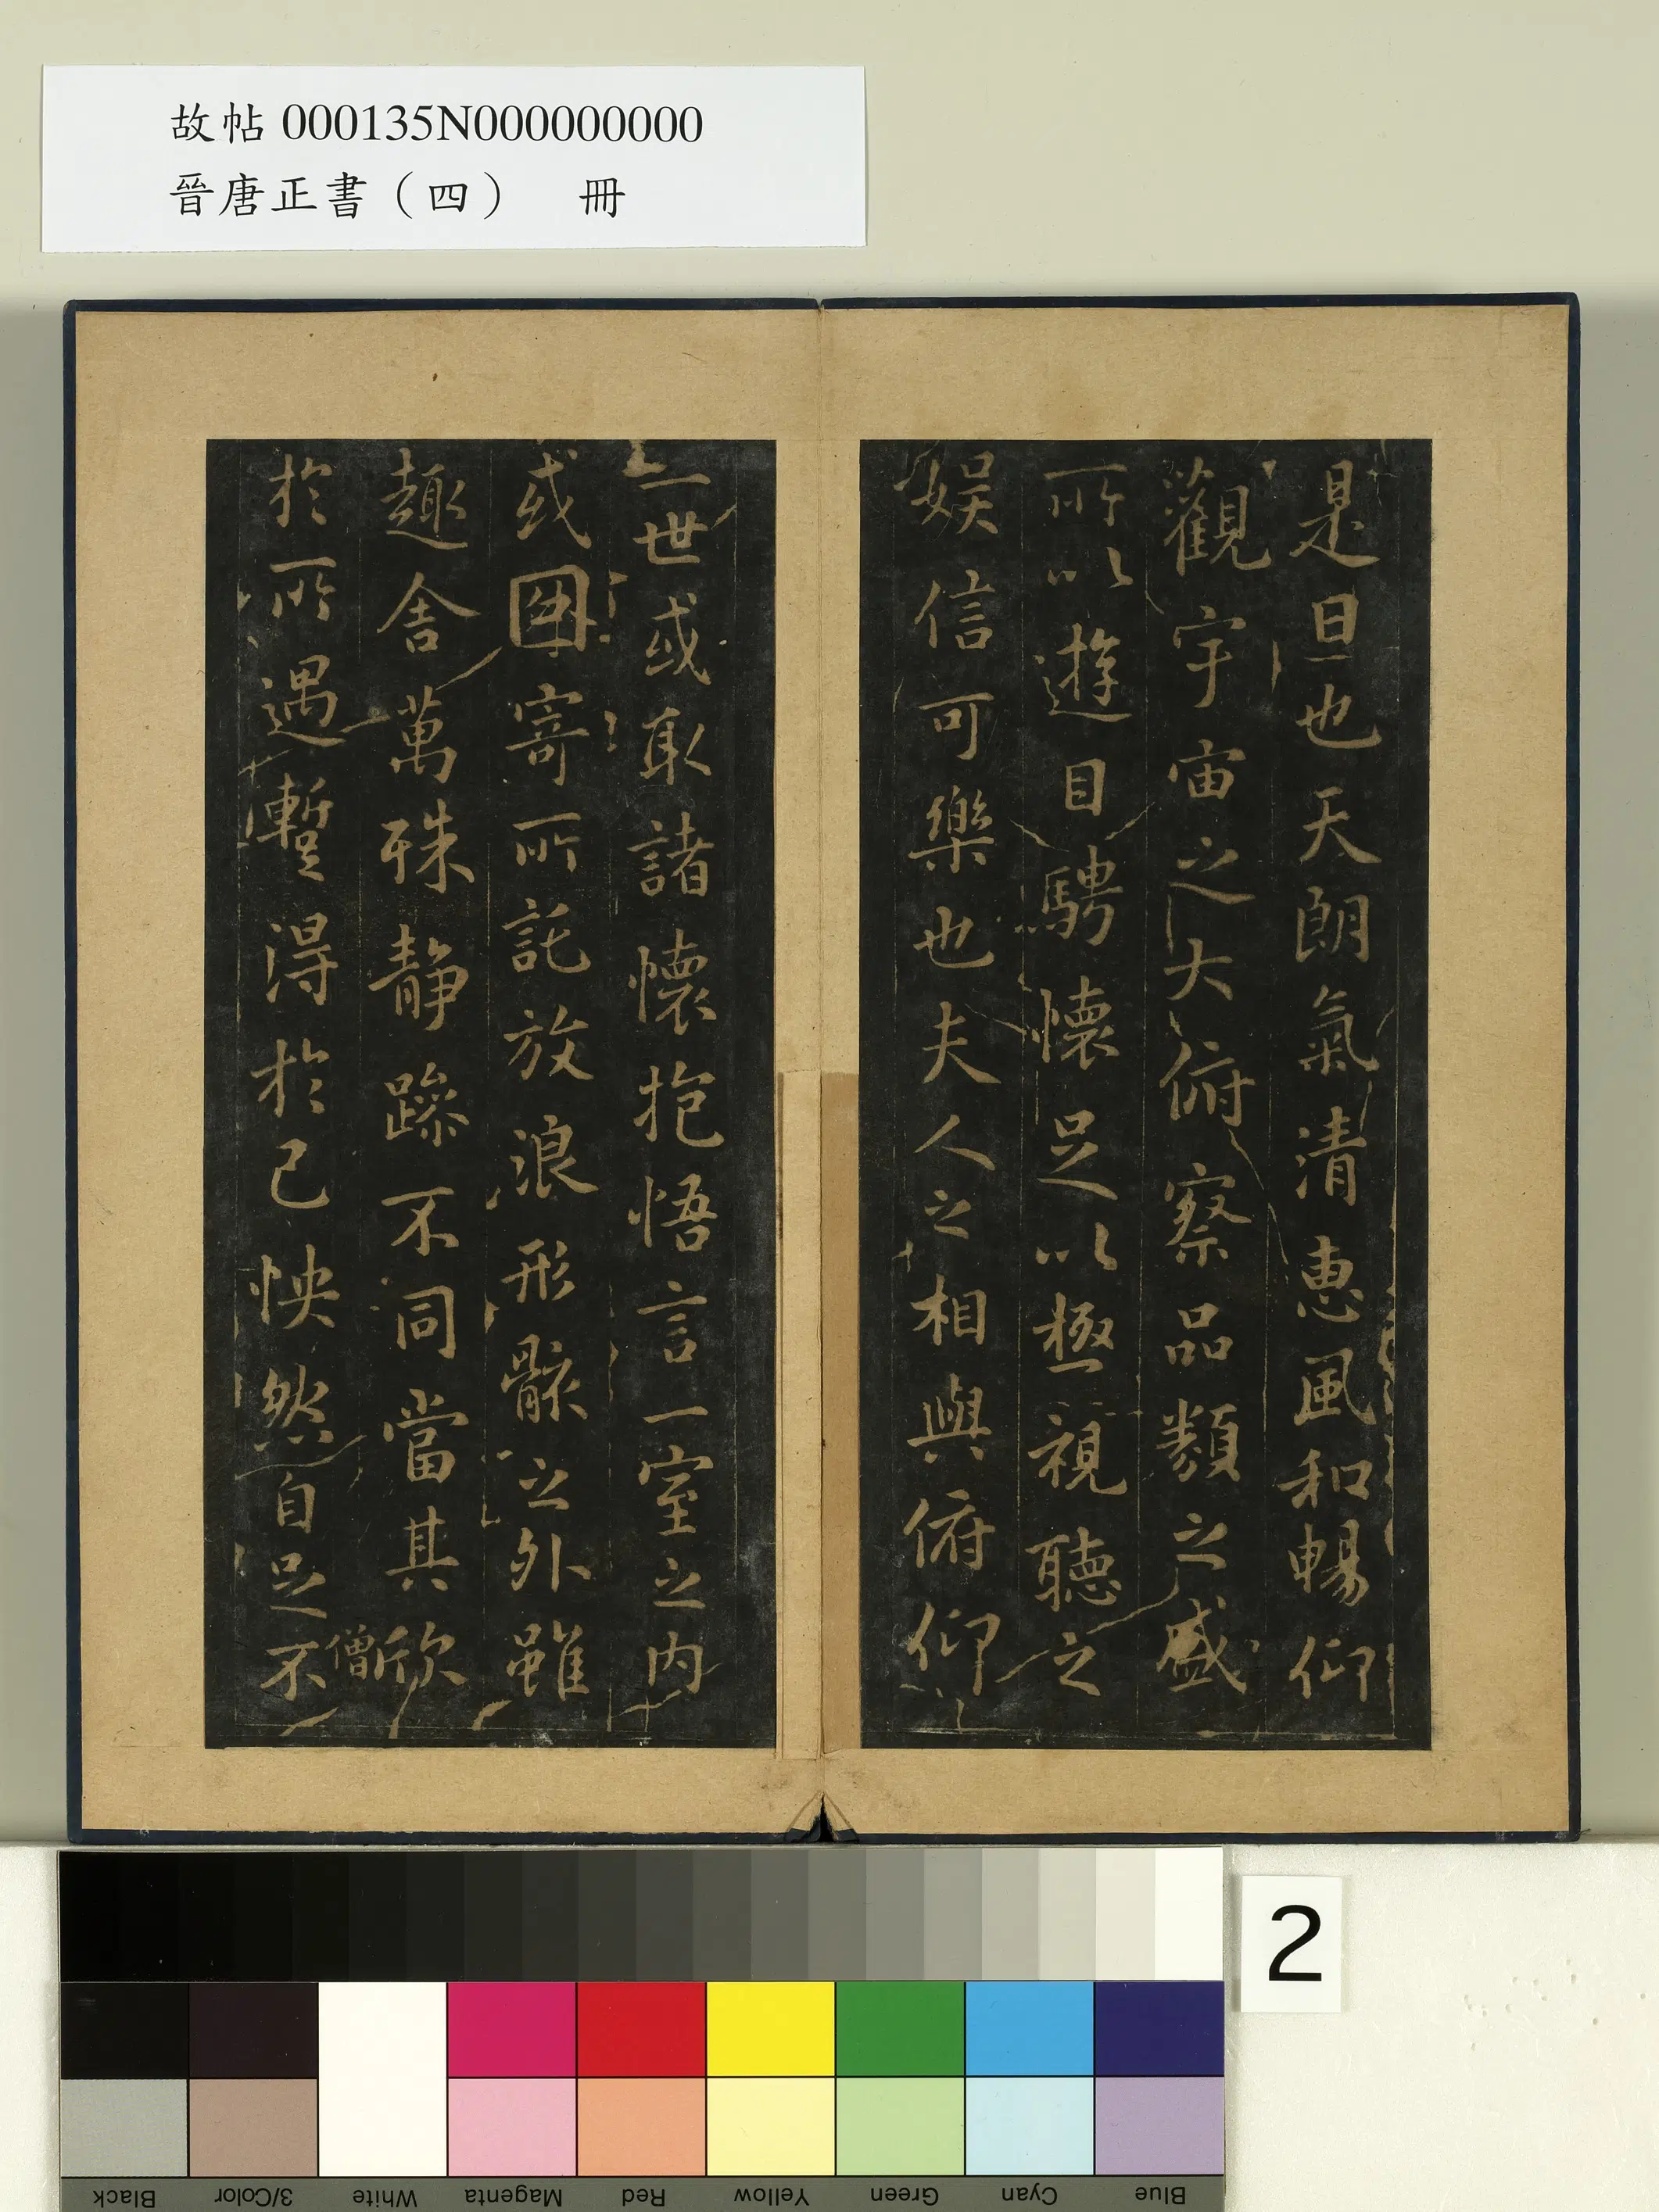 故帖 000135N000000000
晉唐正書（四）　冊
是日也天朗氣清惠風和暢仰
觀宇宙之大俯察品類之盛
所以遊目騁懷足以極視聽之
娛信可樂也夫人之相與俯仰
一世或取諸懷抱悟言一室之內
或因寄所託放浪形骸之外雖
趣舍萬殊靜躁不同當其欣
僧
於所遇暫得於己怏然自足不
2
Black
3/Color
White
Magenta
Red
Yellow
Green
Cyan
Blue